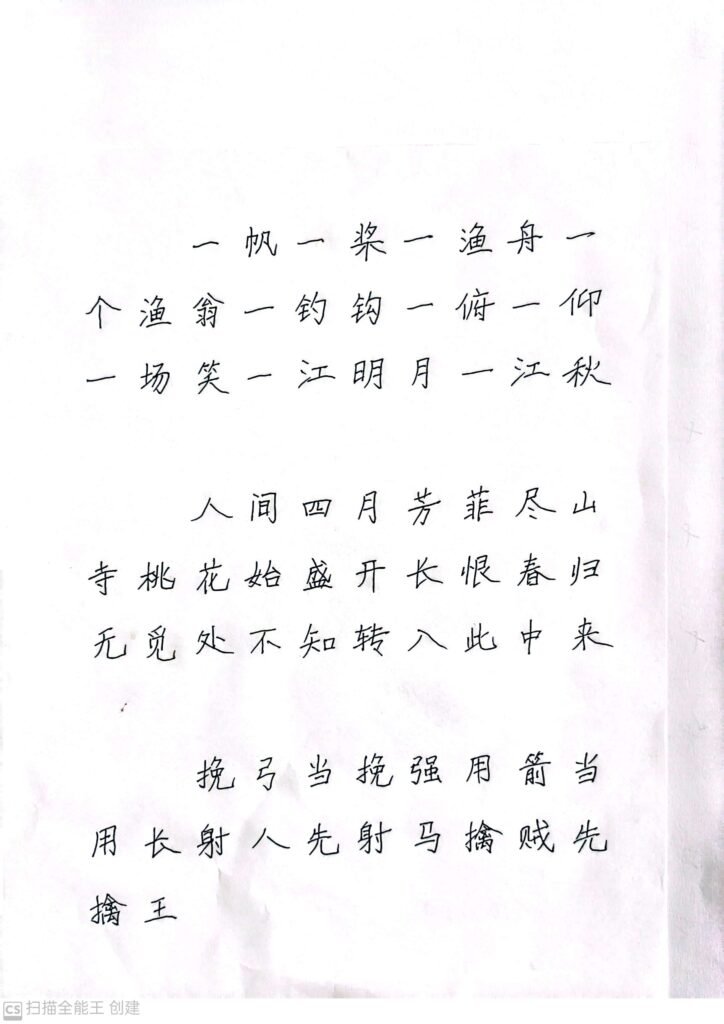 一帆一桨一渔舟一
个渔翁一钓钩一俯一仰
一场笑一江明月一江秋
人间四月芳菲尽山
寺桃花始盛开长恨春归
无觅处不知转入此中来
挽弓当挽强用箭当
用长射人先射马擒贼先
擒王
CS 扫描全能王 创建